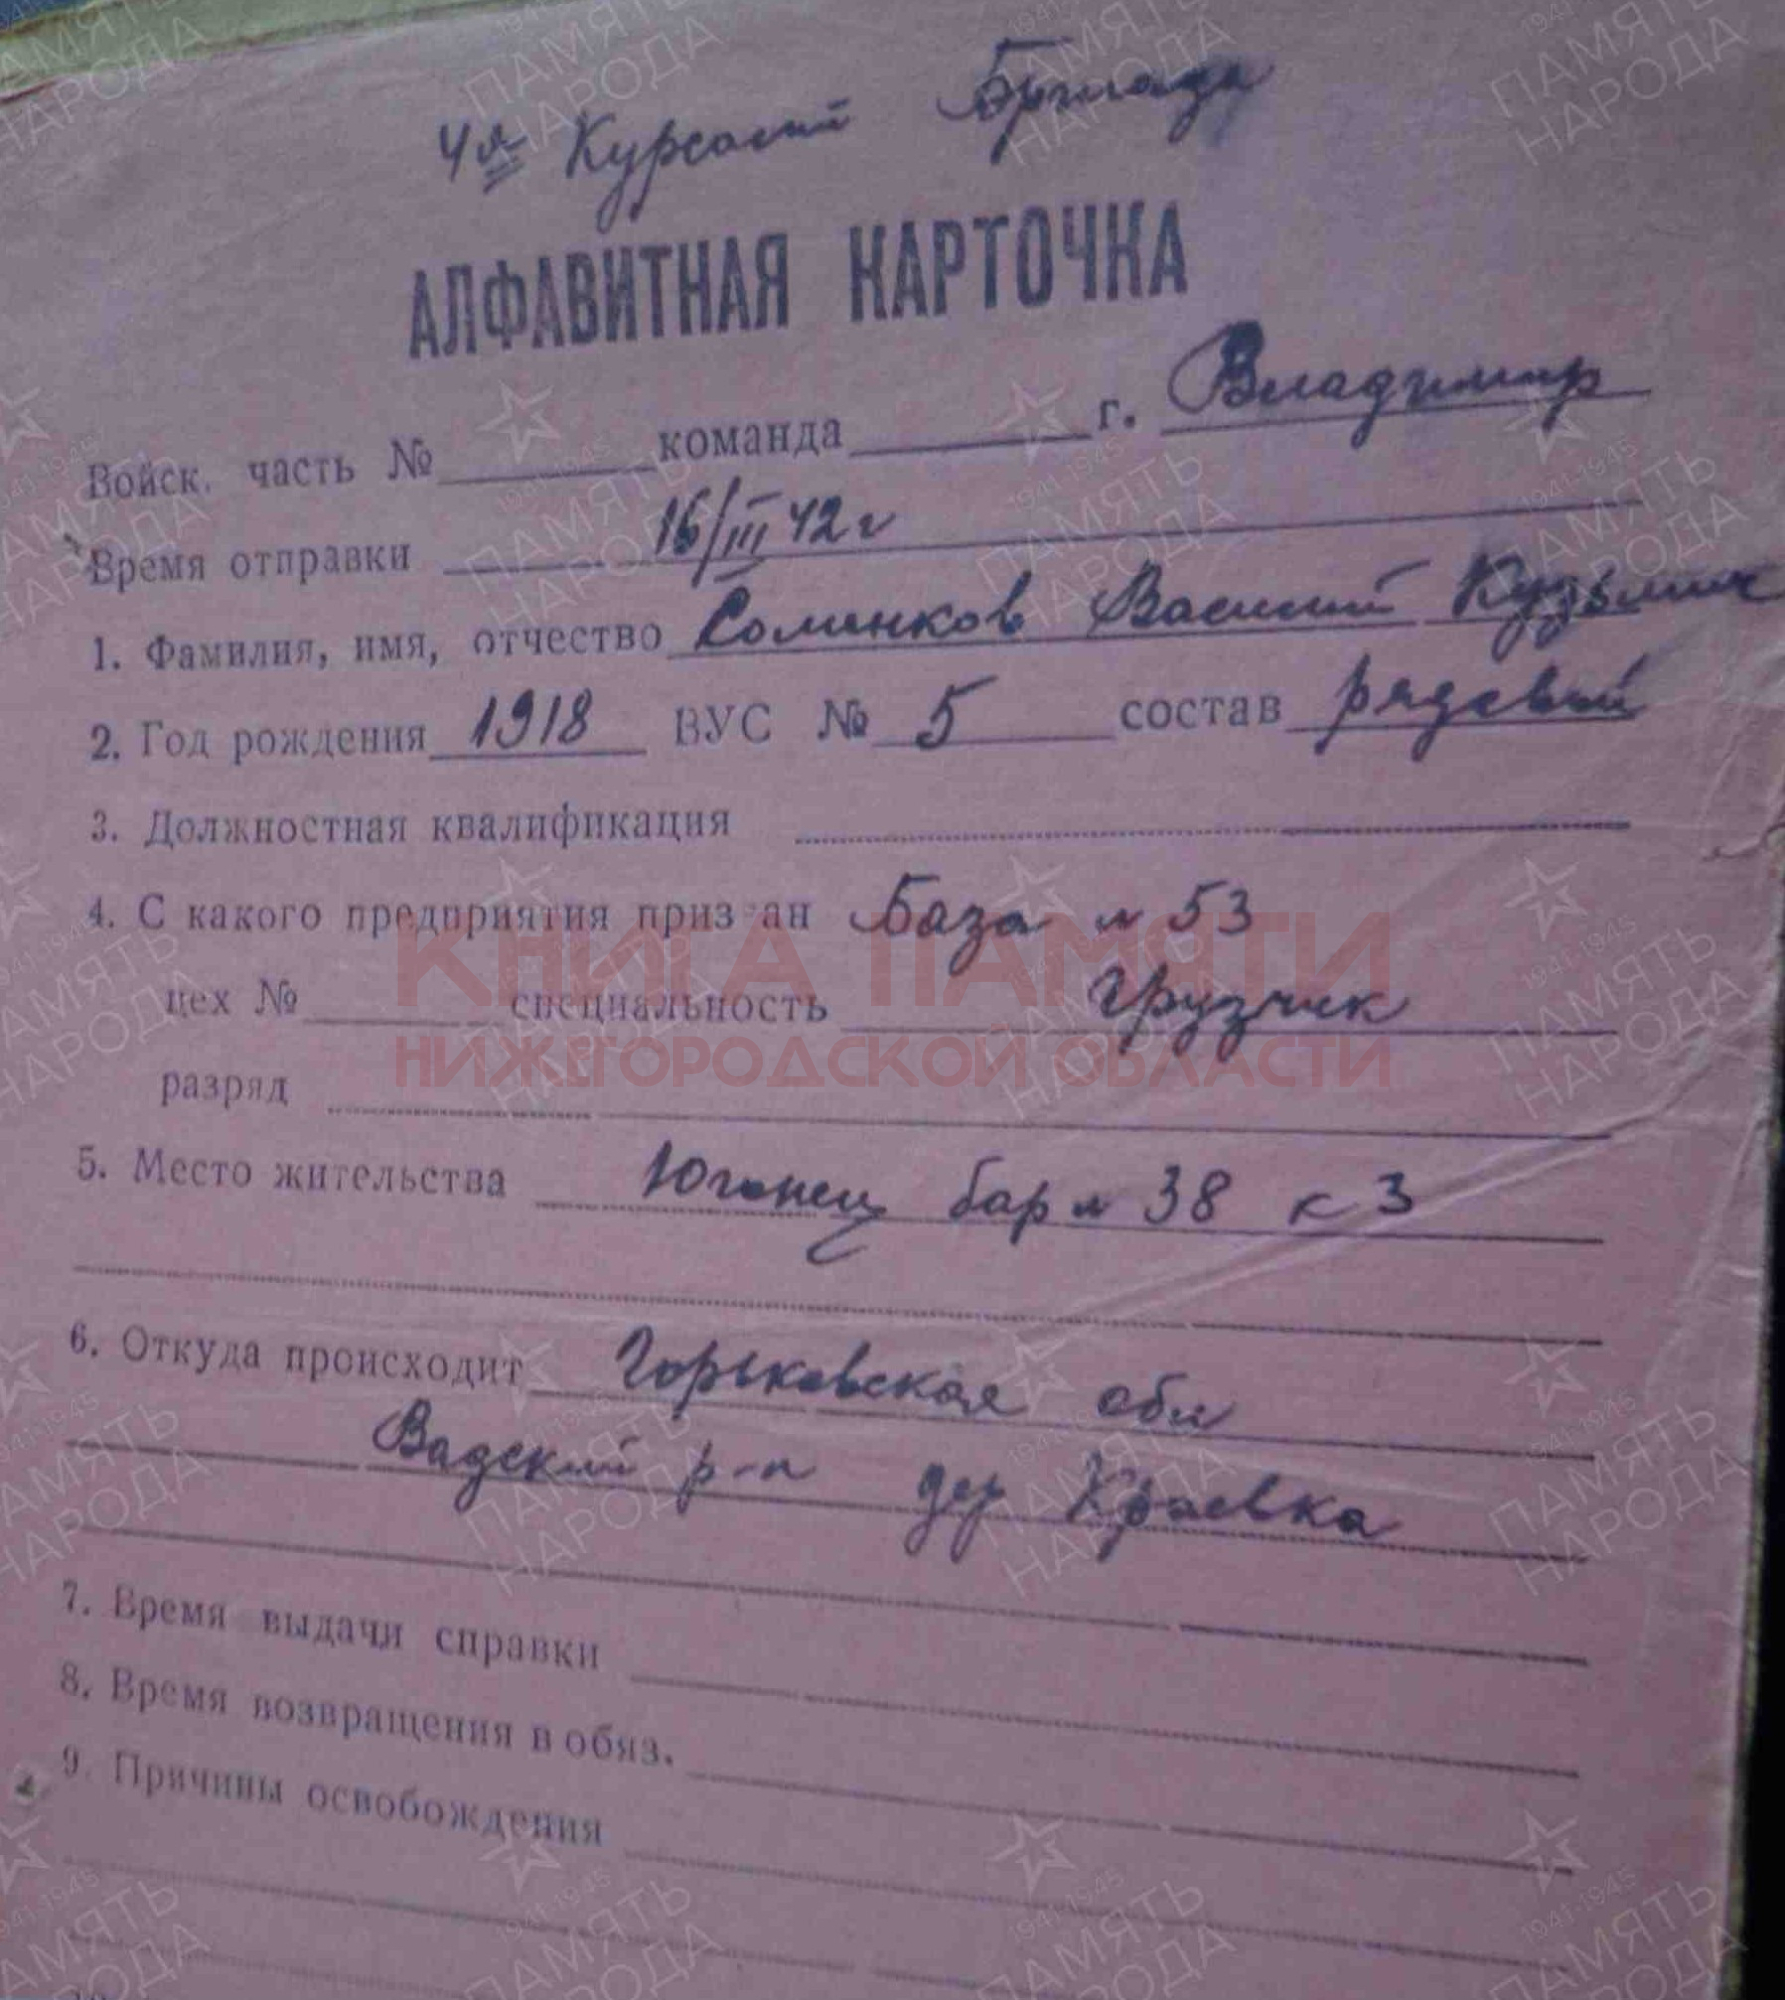 4я Курсант Бригада
АЛФАВИТНАЯ КАРТОЧКА
Войск. часть № команда г. Владимир
Время отправки 16/III 42 г
1. Фамилия, имя, отчество Соменков Василий Кузьмич
2. Год рождения 1918 ВУС № 5 состав рядовой
3. Должностная квалификация
4. С какого предприятия приз ан База № 53
цех № специальность Грузчик
разряд
5. Место жительства Юганец бар № 38 к 3
6. Откуда происходит Горьковская обл
Вадский р-н дер Краевка
7. Время выдачи справки
8. Время возвращения в обяз.
9. Причины освобождения
КНИГА ПАМЯТИ
НИЖЕГОРОДСКОЙ ОБЛАСТИ
ПАМЯТЬ НАРОДА
1941-1945